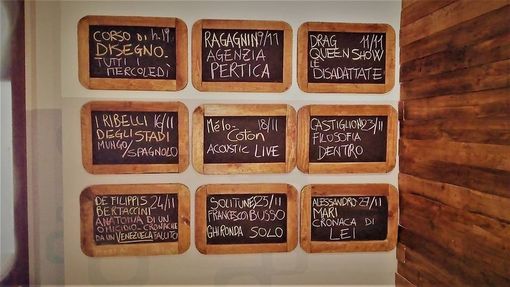 CORSO DI h.19
DISEGNO.
TUTTI I
MERCOLEDÌ
RAGAGNIN 9/11
AGENZIA
PERTICA
DRAG 11/11
QUEEN SHOW
LE
DISADATTATE
I RIBELLI 16/11
DEGLI STADI
MUNGO/SPAGNOLO
Mélo- 18/11
Coton
ACOUSTIC LIVE
CASTIGLIONI 23/11
FILOSOFIA
DENTRO
DE FILIPPIS 24/11
BERTACCINI
ANATOMIA DI UN
OMICIDIO - CRONACHE
DA UN VENEZUELA FALLITO
SOLITUNES 25/11
FRANCESCO BUSSO
GHIRONDA SOLO
ALESSANDRO 29/11
MARI
CRONACA DI
LEI